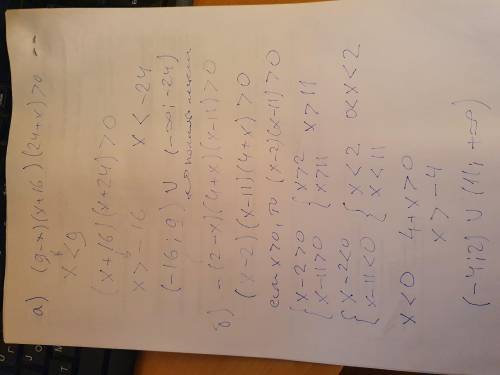 а) (9-x)(x+16)(24+x)>0
x<9
(x+16)(x+24)>0
x>-16 x<-24
(-16; 9) ∪ (-∞; -24)
б) -(2-x)(4+x)(x-11)>0
(x-2)(x-11)(4+x)>0
если x>0, то (x-2)(x-11)>0
{x-2>0 {x>2
{x-11>0 {x>11 x>11
{x-2<0 {x<2
{x-11<0 {x<11 0<x<2
x<0 4+x>0
x>-4
(-4; 2) ∪ (11; +∞)